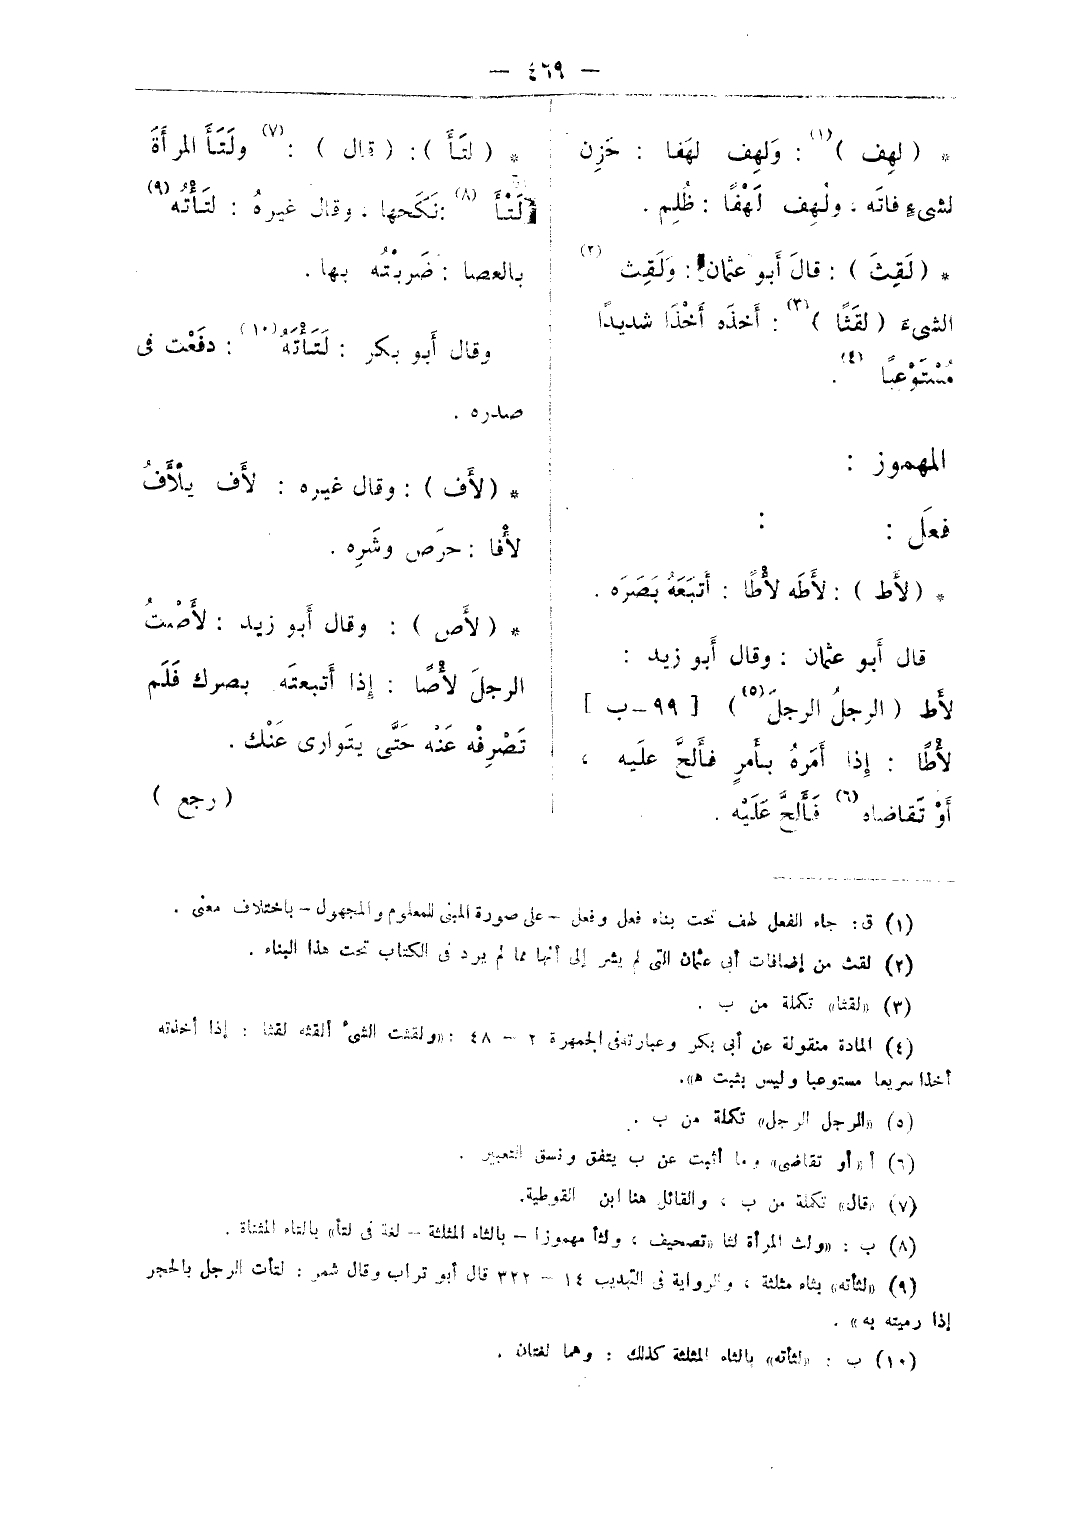 — ٤٦٩ —
* ( لهِف )(١) : وَلهِف لهَفا : حَزِن
لشىءٍ فاتَه ، ولُهِف لَهْفًا : ظُلِم .
* ( لَقِثَ ) : قالَ أَبو عثمان : وَلَقِث (٢)
الشىءَ ( لقَثًا )(٣) : أَخذَه أَخْذًا شديدًا
مُسْتَوْعِبًا (٤) .
المهموز :
فعَل : :
* ( لأَط ) : لأَطَه لأْطًا : أَتبَعَهُ بَصَرَه .
قال أَبو عثمان : وقال أَبو زيد :
لأَط ( الرجلُ الرجلَ(٥) ) [ ٩٩ – ب ]
لأْطًا : إِذا أَمَرهُ بأَمرٍ فأَلحَّ علَيه ،
أَوْ تَقاضاه(٦) فَأَلحَّ عَلَيْه .
* ( لتَأَ ) : ( قال ) :(٧) ولَتَأَ المرأَةَ
لَتْأ (٨) : نَكَحها ، وقال غيرهُ : لتَأْتُه(٩)
بالعصا : ضَربْتُه بها .
وقال أَبو بكر : لَتَأْتَهُ(١٠) : دفَعْت فى
صدره .
* ( لأَف ) : وقال غيره : لأَف يلأَفُ
لأْفا : حرَص وشَرِه .
* ( لأَص ) : وقال أَبو زيد : لأَصْتُ
الرجلَ لأْصًا : إِذا أَتبعتَه بصرك فَلَم
تَصْرِفْه عَنْه حَتَّى يتوارى عَنْك .
( رجع )
(١) ق : جاء الفعل لهف تحت بناء فعل وفعل – على صورة المبنى للمعلوم والمجهول – باختلاف معنى .
(٢) لقث من إضافات أبى عثمان التى لم يشر إلى أنها مما لم يرد فى الكتاب تحت هذا البناء .
(٣) «لقثا» تكملة من ب .
(٤) المادة منقولة عن أبى بكر وعبارته فى الجمهرة ٢ – ٤٨ : «ولقثت الشىء ألقثه لقثا : إذا أخذته
أخذا سريعا مستوعبا وليس بثبت ه».
(٥) «الرجل الرجل» تكملة من ب .
(٦) أ «أو تقاضى» وما أثبت عن ب يتفق ونسق التعبير .
(٧) «قال» تكملة من ب ، والقائل هنا ابن القوطية.
(٨) ب : «ولث المرأة لثا «تصحيف ، ولثأ مهموزا – بالثاء المثلثة – لغة فى لتأ» بالتاء المثناة .
(٩) «لثأته» بثاء مثلثة ، والرواية فى التهذيب ١٤ – ٣٢٢ قال أبو تراب وقال شمر : لتأت الرجل بالحجر
إذا رميته به» .
(١٠) ب : «لثأته» بالثاء المثلثة كذلك : وهما لغتان .